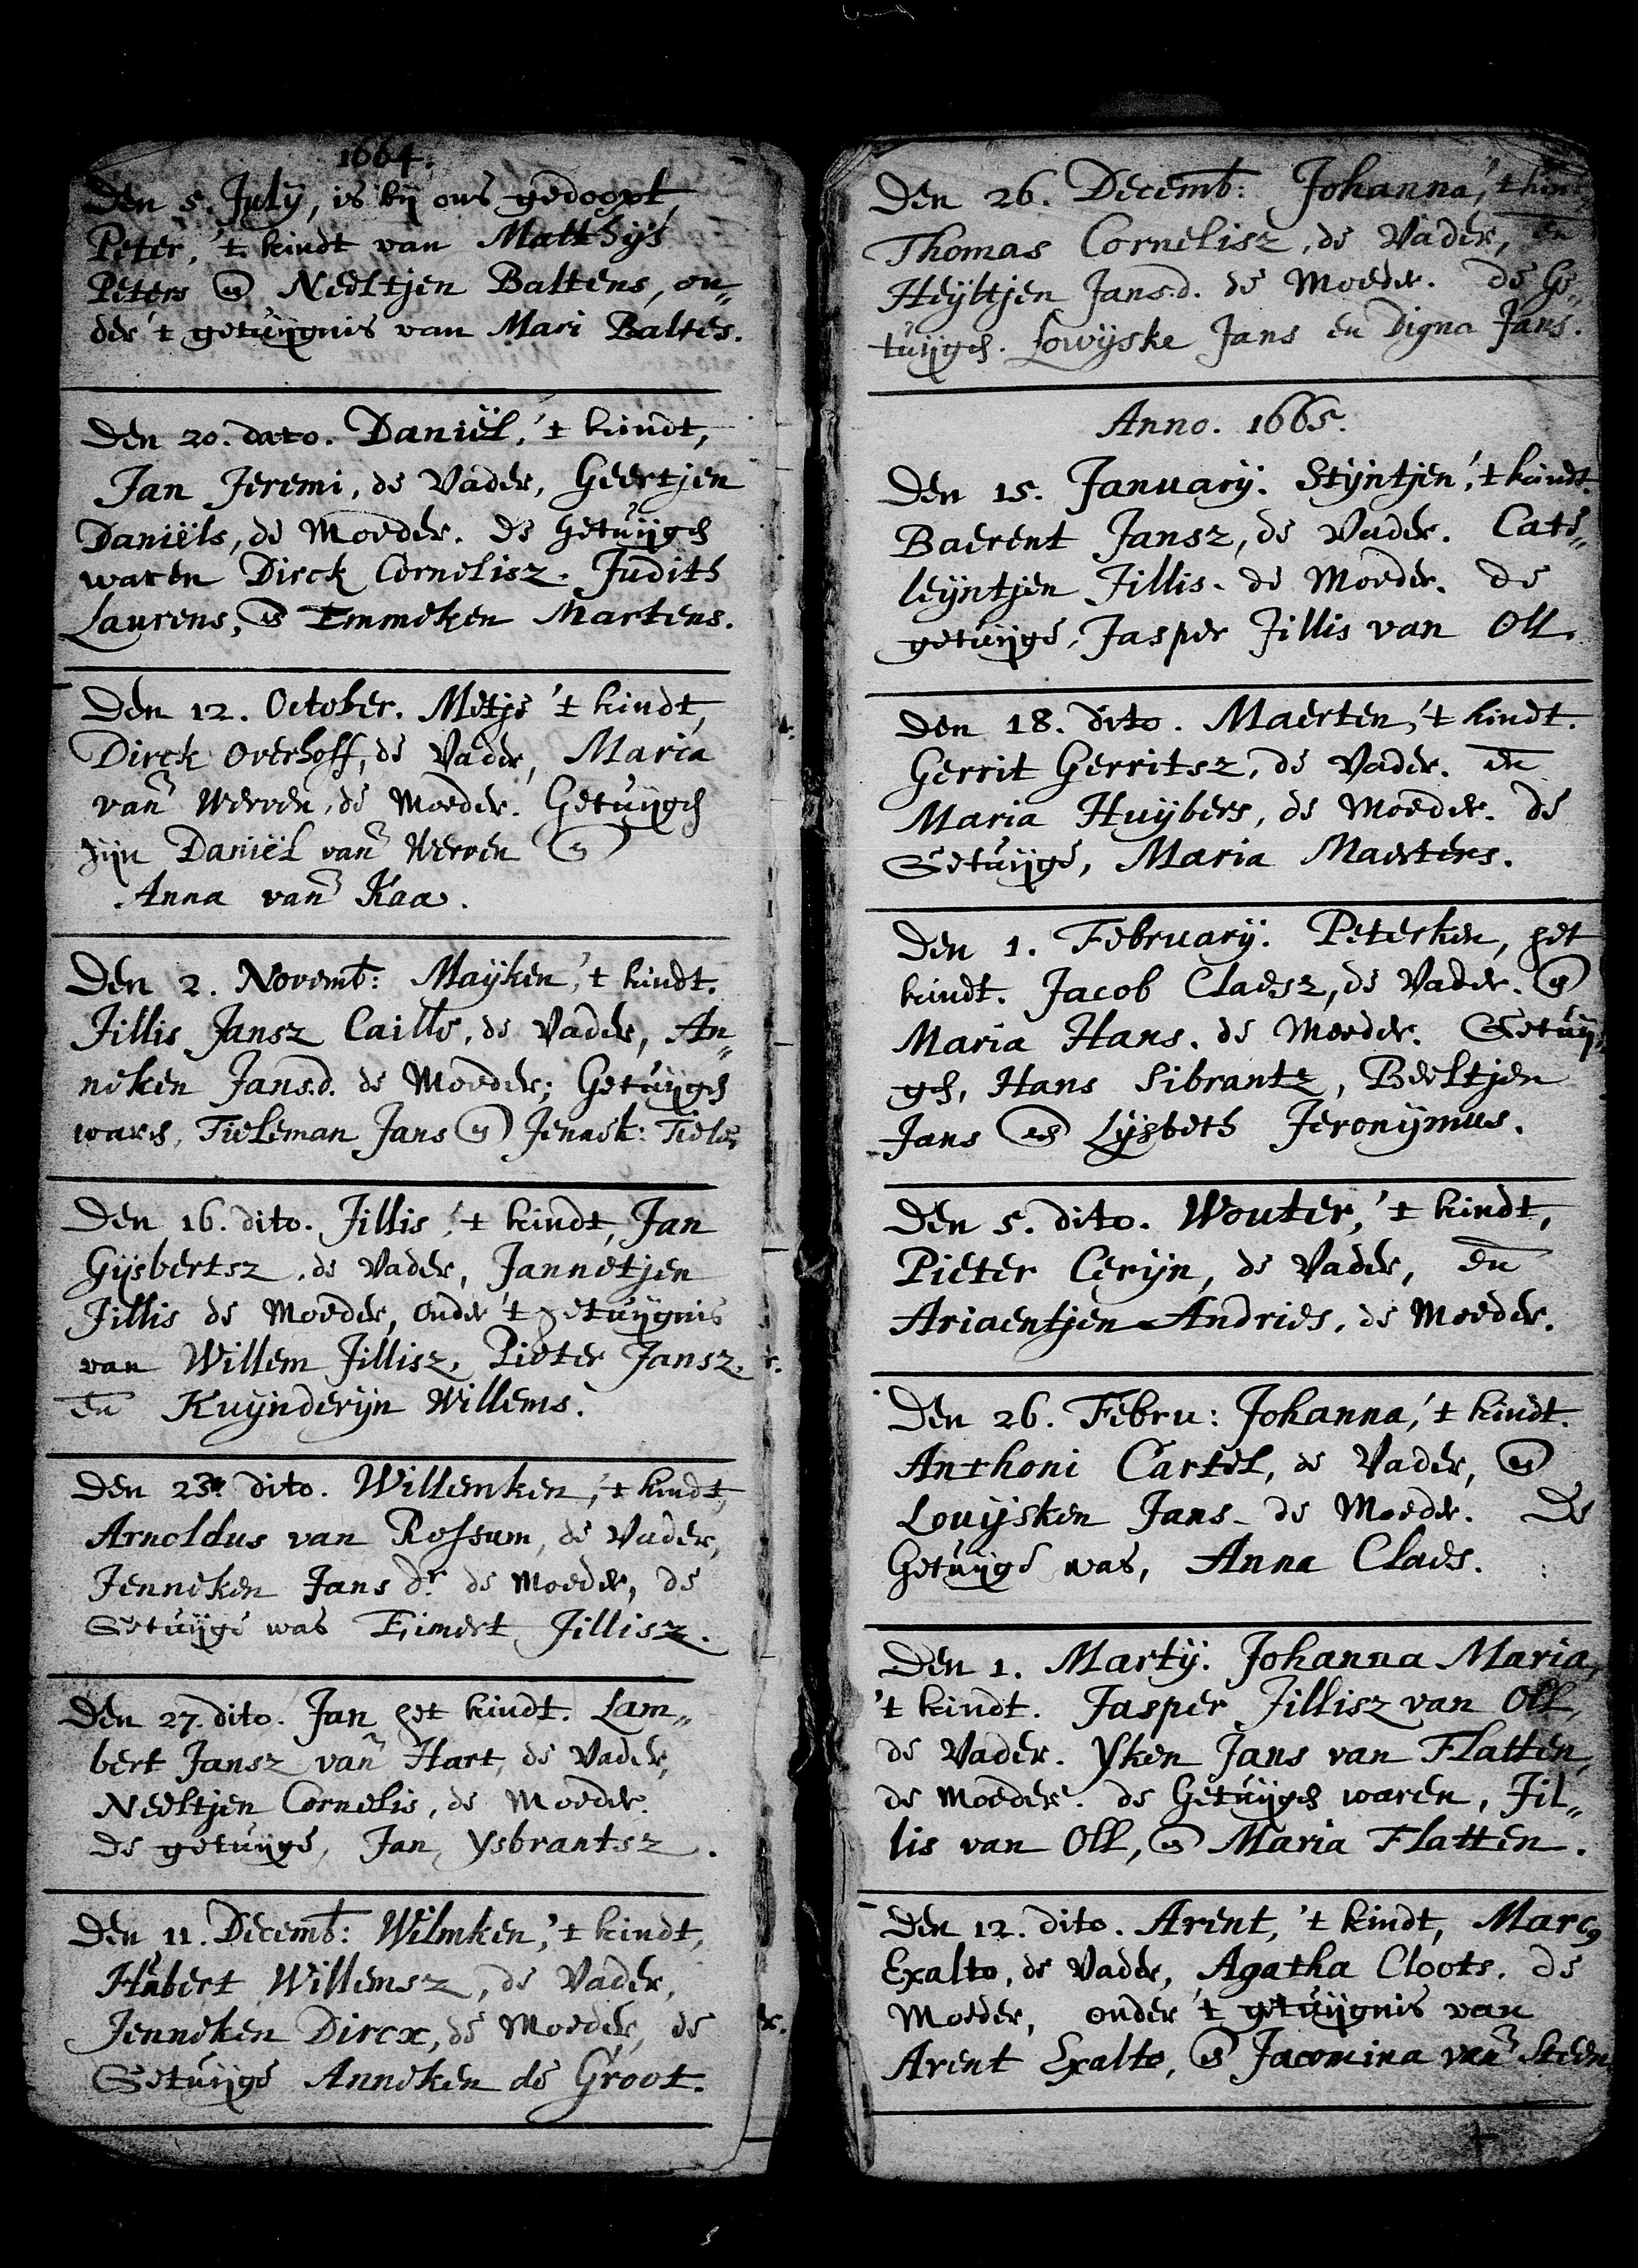 1664.
Den 5. July, is bij ons gedoopt
Peter, 't kindt van Matthijs
Peters en Neeltjen Baltens, on„
der 't getuijgnis van Mari Baltes.
Den 20. dato. Daniël, 't kindt,
Jan Jeremi, de Vader, Geertjen
Daniëls, de Moeder. De Getuijgen
waren Dirck Cornelisz. Judith
Laurens, en Emmeken Martens.
Den 12. October. Metje 't kindt,
Dirck Overhoff, de Vader, Maria
van Werven, de Moeder. Getuijgen
zijn Daniël van Werven en
Anna van Kaa.
Den 2. Novemb: Maijken, 't kindt.
Jillis Jansz Caille, de Vader, An„
neken Jans.d. de Moeder; Getuijgen
waren, Tieleman Jans en Jennek: Tiele„
Den 16. dito. Jillis, 't kindt, Jan
Gijsbertsz, de Vader, Jannetjen
Jillis de Moeder, onder 't getuijgnis
van Willem Jillisz, Pieter Jansz.
en Kuijnderijn Willems.
Den 23n dito. Willemken, 't kindt,
Arnoldus van Rossum, de Vader,
Jenneken Jans dr. de Moeder, de
Getuijge was Eimert Jillisz.
Den 27. dito. Jan het kindt. Lam„
bert Jansz van Hart, de Vader,
Neeltjen Cornelis, de Moeder.
De getuijge, Jan Ysbrantsz.
Den 11. Decemb: Wilmken, 't kindt,
Hubert Willemsz, de Vader,
Jenneken Dircx, de Moeder, de
Getuijge Anneken de Groot.
Den 26. Decemb: Johanna, 't kint
Thomas Cornelisz, de Vader, en
Heijltjen Jans.d. de Moeder. De Ge„
tuijgen. Lowijske Jans en Digna Jans.
Anno. 1665.
Den 15. January. Stijntjen, 't kindt.
Baerent Jansz, de Vader. Cate„
leijntjen Jillis. de Moeder. De
getuijge, Jasper Jillis van Oll.
Den 18. dito. Maerten, 't kindt.
Gerrit Gerritsz, de Vader. en
Maria Huijbers, de Moeder. de
Getuijge, Maria Maertens.
Den 1. February. Peterken, het
kindt. Jacob Claesz, de Vader. en
Maria Hans. de Moeder. Getuij„
gen, Hans Sibrantz, Beeltjen
Jans en Lijsbeth Jeronijmus.
Den 5. dito. Wouter, 't kindt,
Pieter Cerijn, de Vader, en
Ariaentjen Andries, de Moeder.
Den 26. Febru: Johanna, 't kindt.
Anthoni Cartel, de Vader, en
Louijsken Jans de Moeder. De
Getuijge was, Anna Claes.
Den 1. Martij. Johanna Maria,
't kindt. Jasper Jillisz van Oll,
de Vader. Yken Jans van Flatten,
de Moeder. de Getuijgen waren, Jil„
lis van Oll, en Maria Flatten.
Den 12. dito. Arent, 't kindt, Marcus
Exalto, de Vader, Agatha Cloots. de
Moeder, onder 't getuijgnis van
Arent Exalto, en Jacomina van Steen